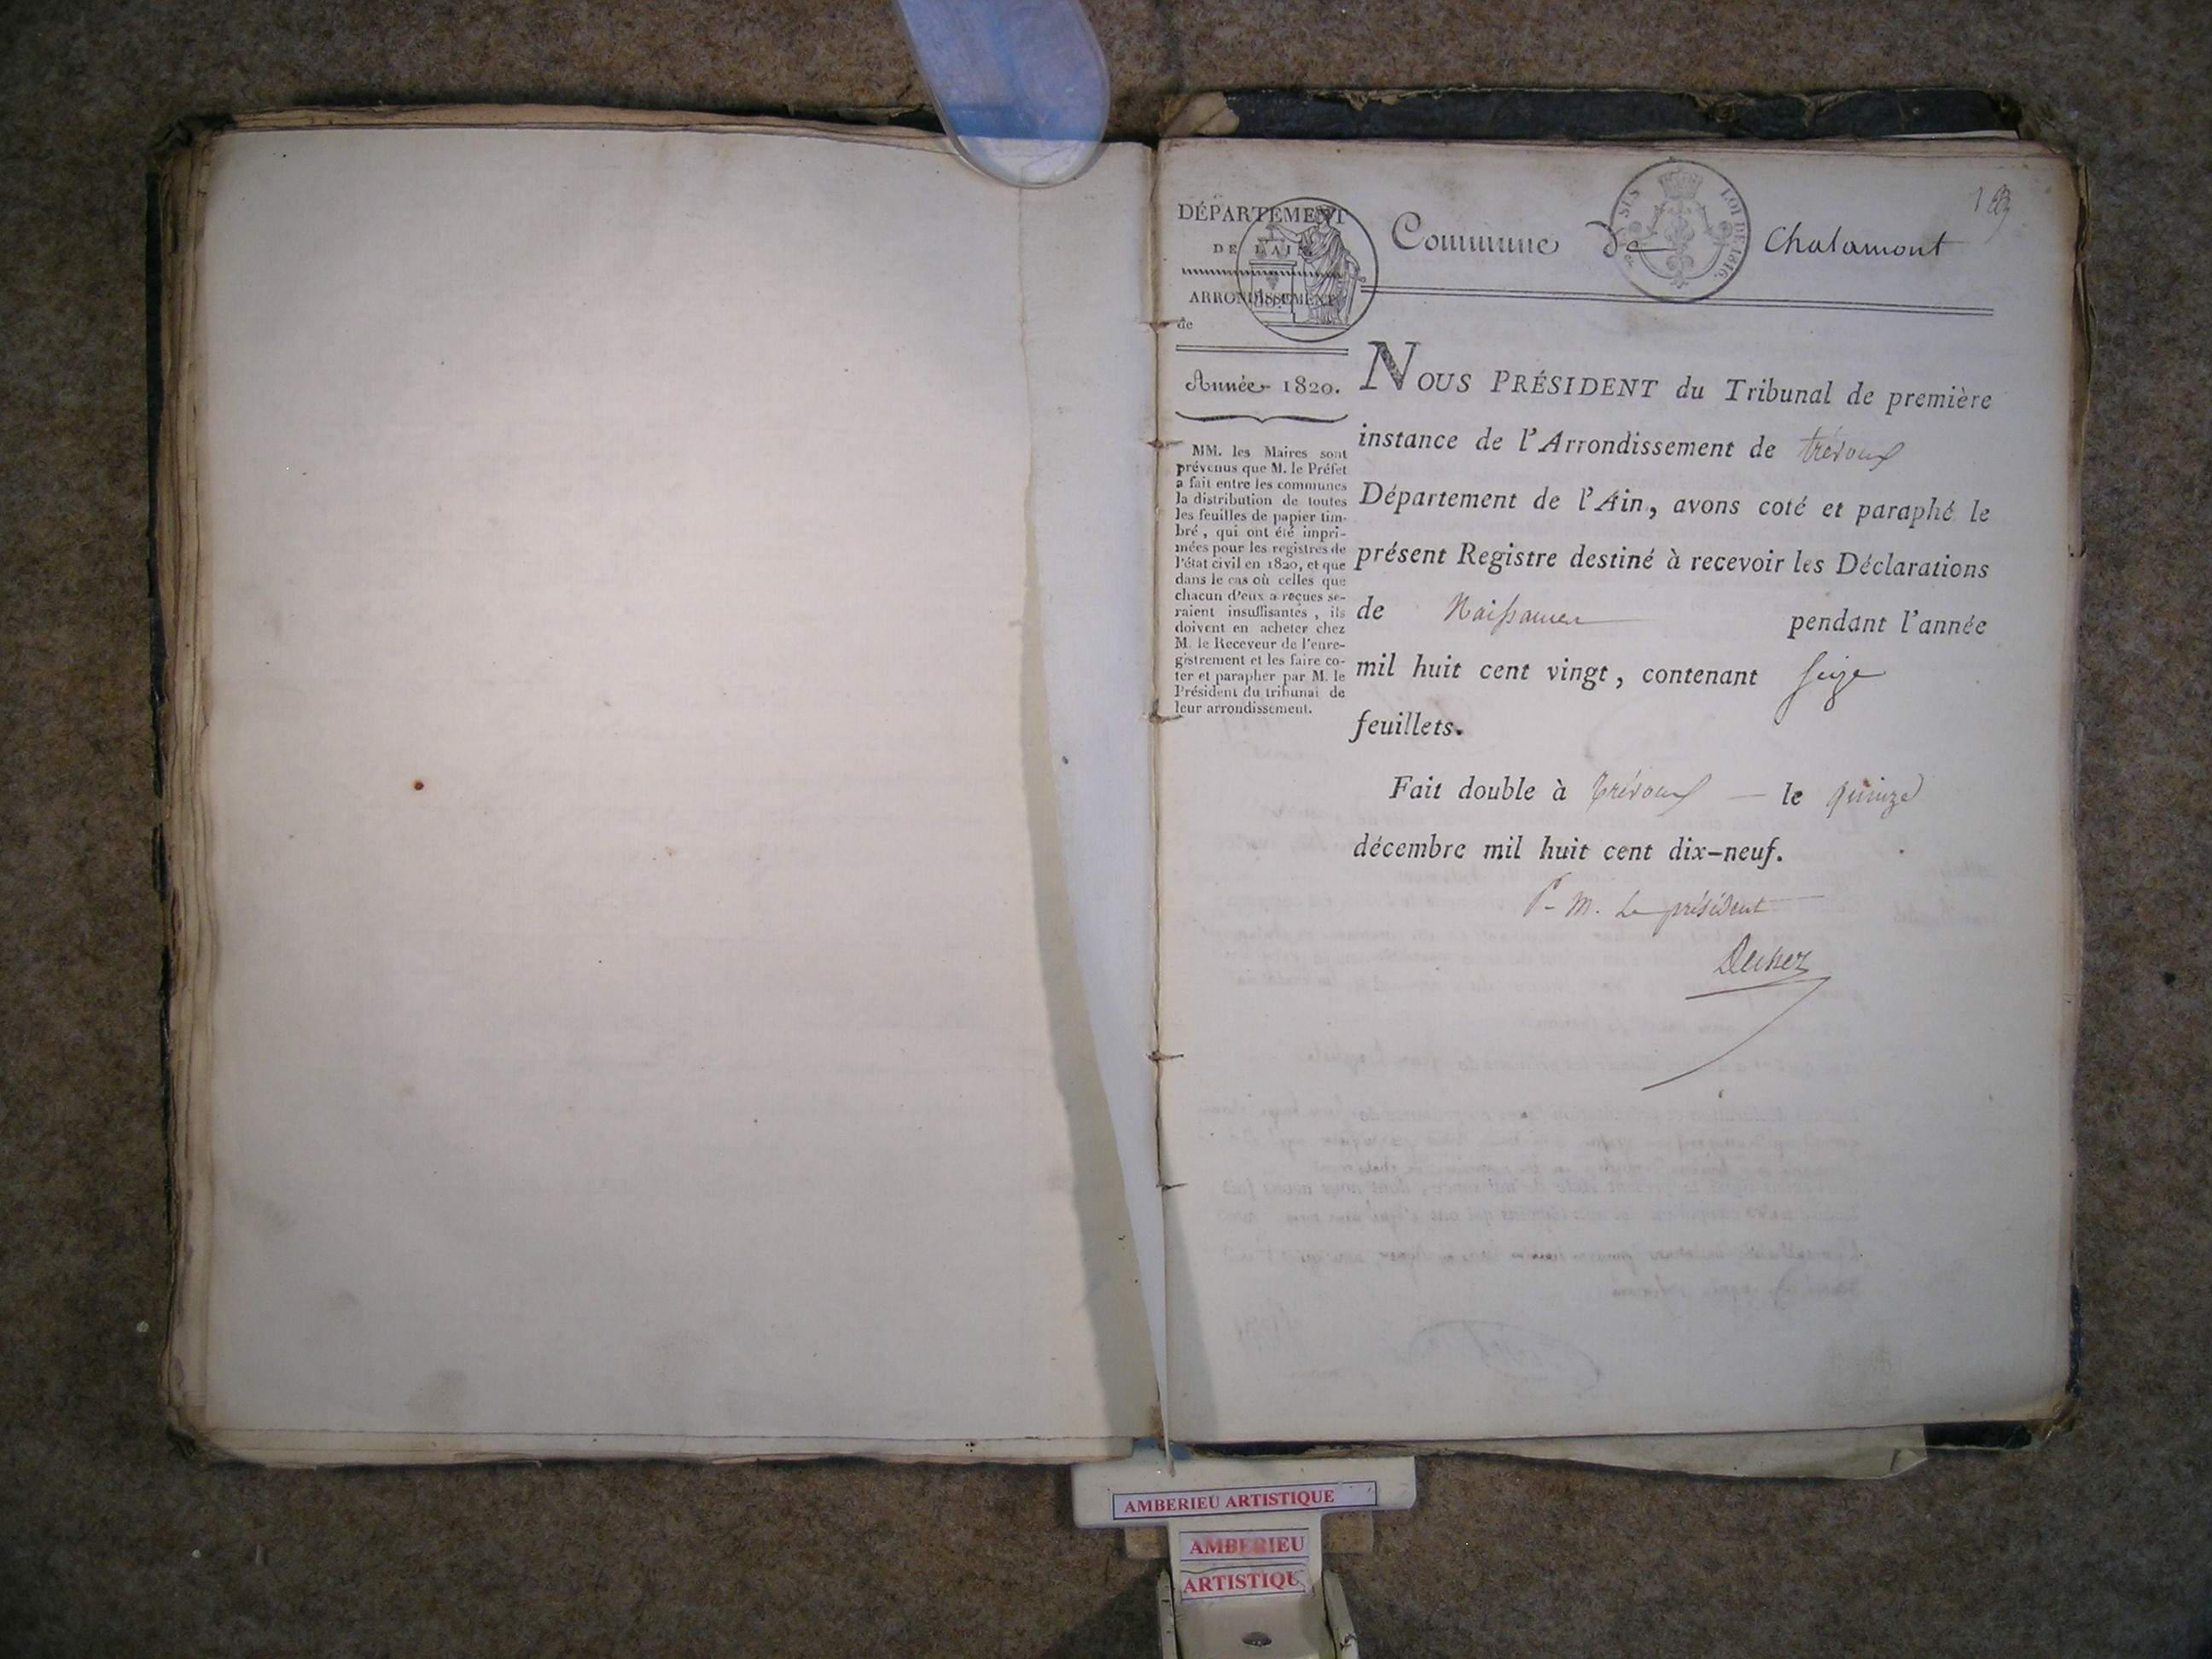 DÉPARTEMENT
DE L'AIN
ARRONDISSEMENT
de
Année 1820.
MM. les Maires sont
prévenus que M. le Préfet
a fait entre les communes
la distribution de toutes
les feuilles de papier tim-
bré, qui ont été impri-
mées pour les registres de
l'état civil en 1820, et que
dans le cas où celles que
chacun d'eux a reçues se-
raient insuffisantes, ils
doivent en acheter chez
M. le Receveur de l'enre-
gistrement et les faire co-
ter et parapher par M. le
Président du tribunal de
leur arrondissement.
Commune de Chalamont
LOI DE 1816.
NOUS PRÉSIDENT du Tribunal de première
instance de l'Arrondissement de trévoux
Département de l'Ain, avons coté et paraphé le
présent Registre destiné à recevoir les Déclarations
de Naissances pendant l'année
mil huit cent vingt, contenant seize
feuillets.
Fait double à trévoux — le quinze
décembre mil huit cent dix-neuf.
P. M. Le président
AMBERIEU ARTISTIQUE
AMBERIEU
ARTISTIQU